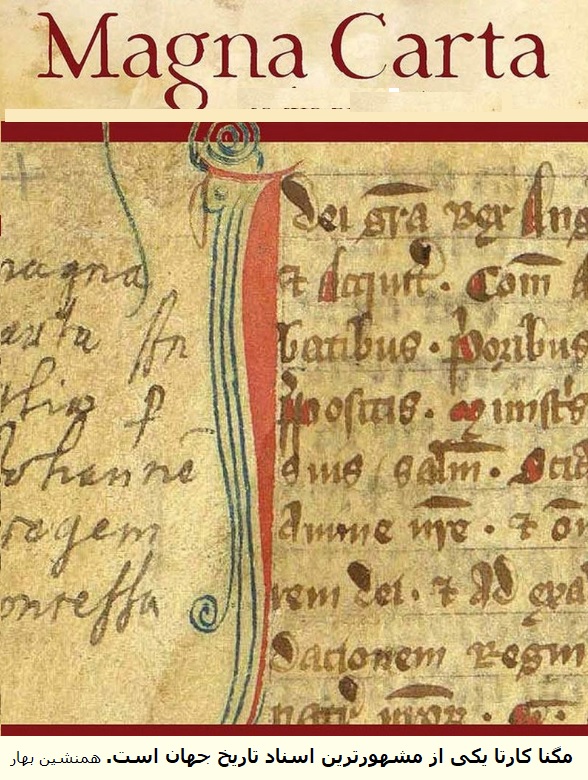 Magna Carta
magna
carta An
glie p
Johanne
regem
concessa
dei gr̄a Rex Ang
batibus · p̄oribus
p̄positis · ministr̄
suis sal̄m · Scia
Anime nr̄e · ⁊
rem dei · ⁊ Ad exa
dationem Regni
مگنا کارتا یکی از مشهورترین اسناد تاریخ جهان است. همنشین بهار